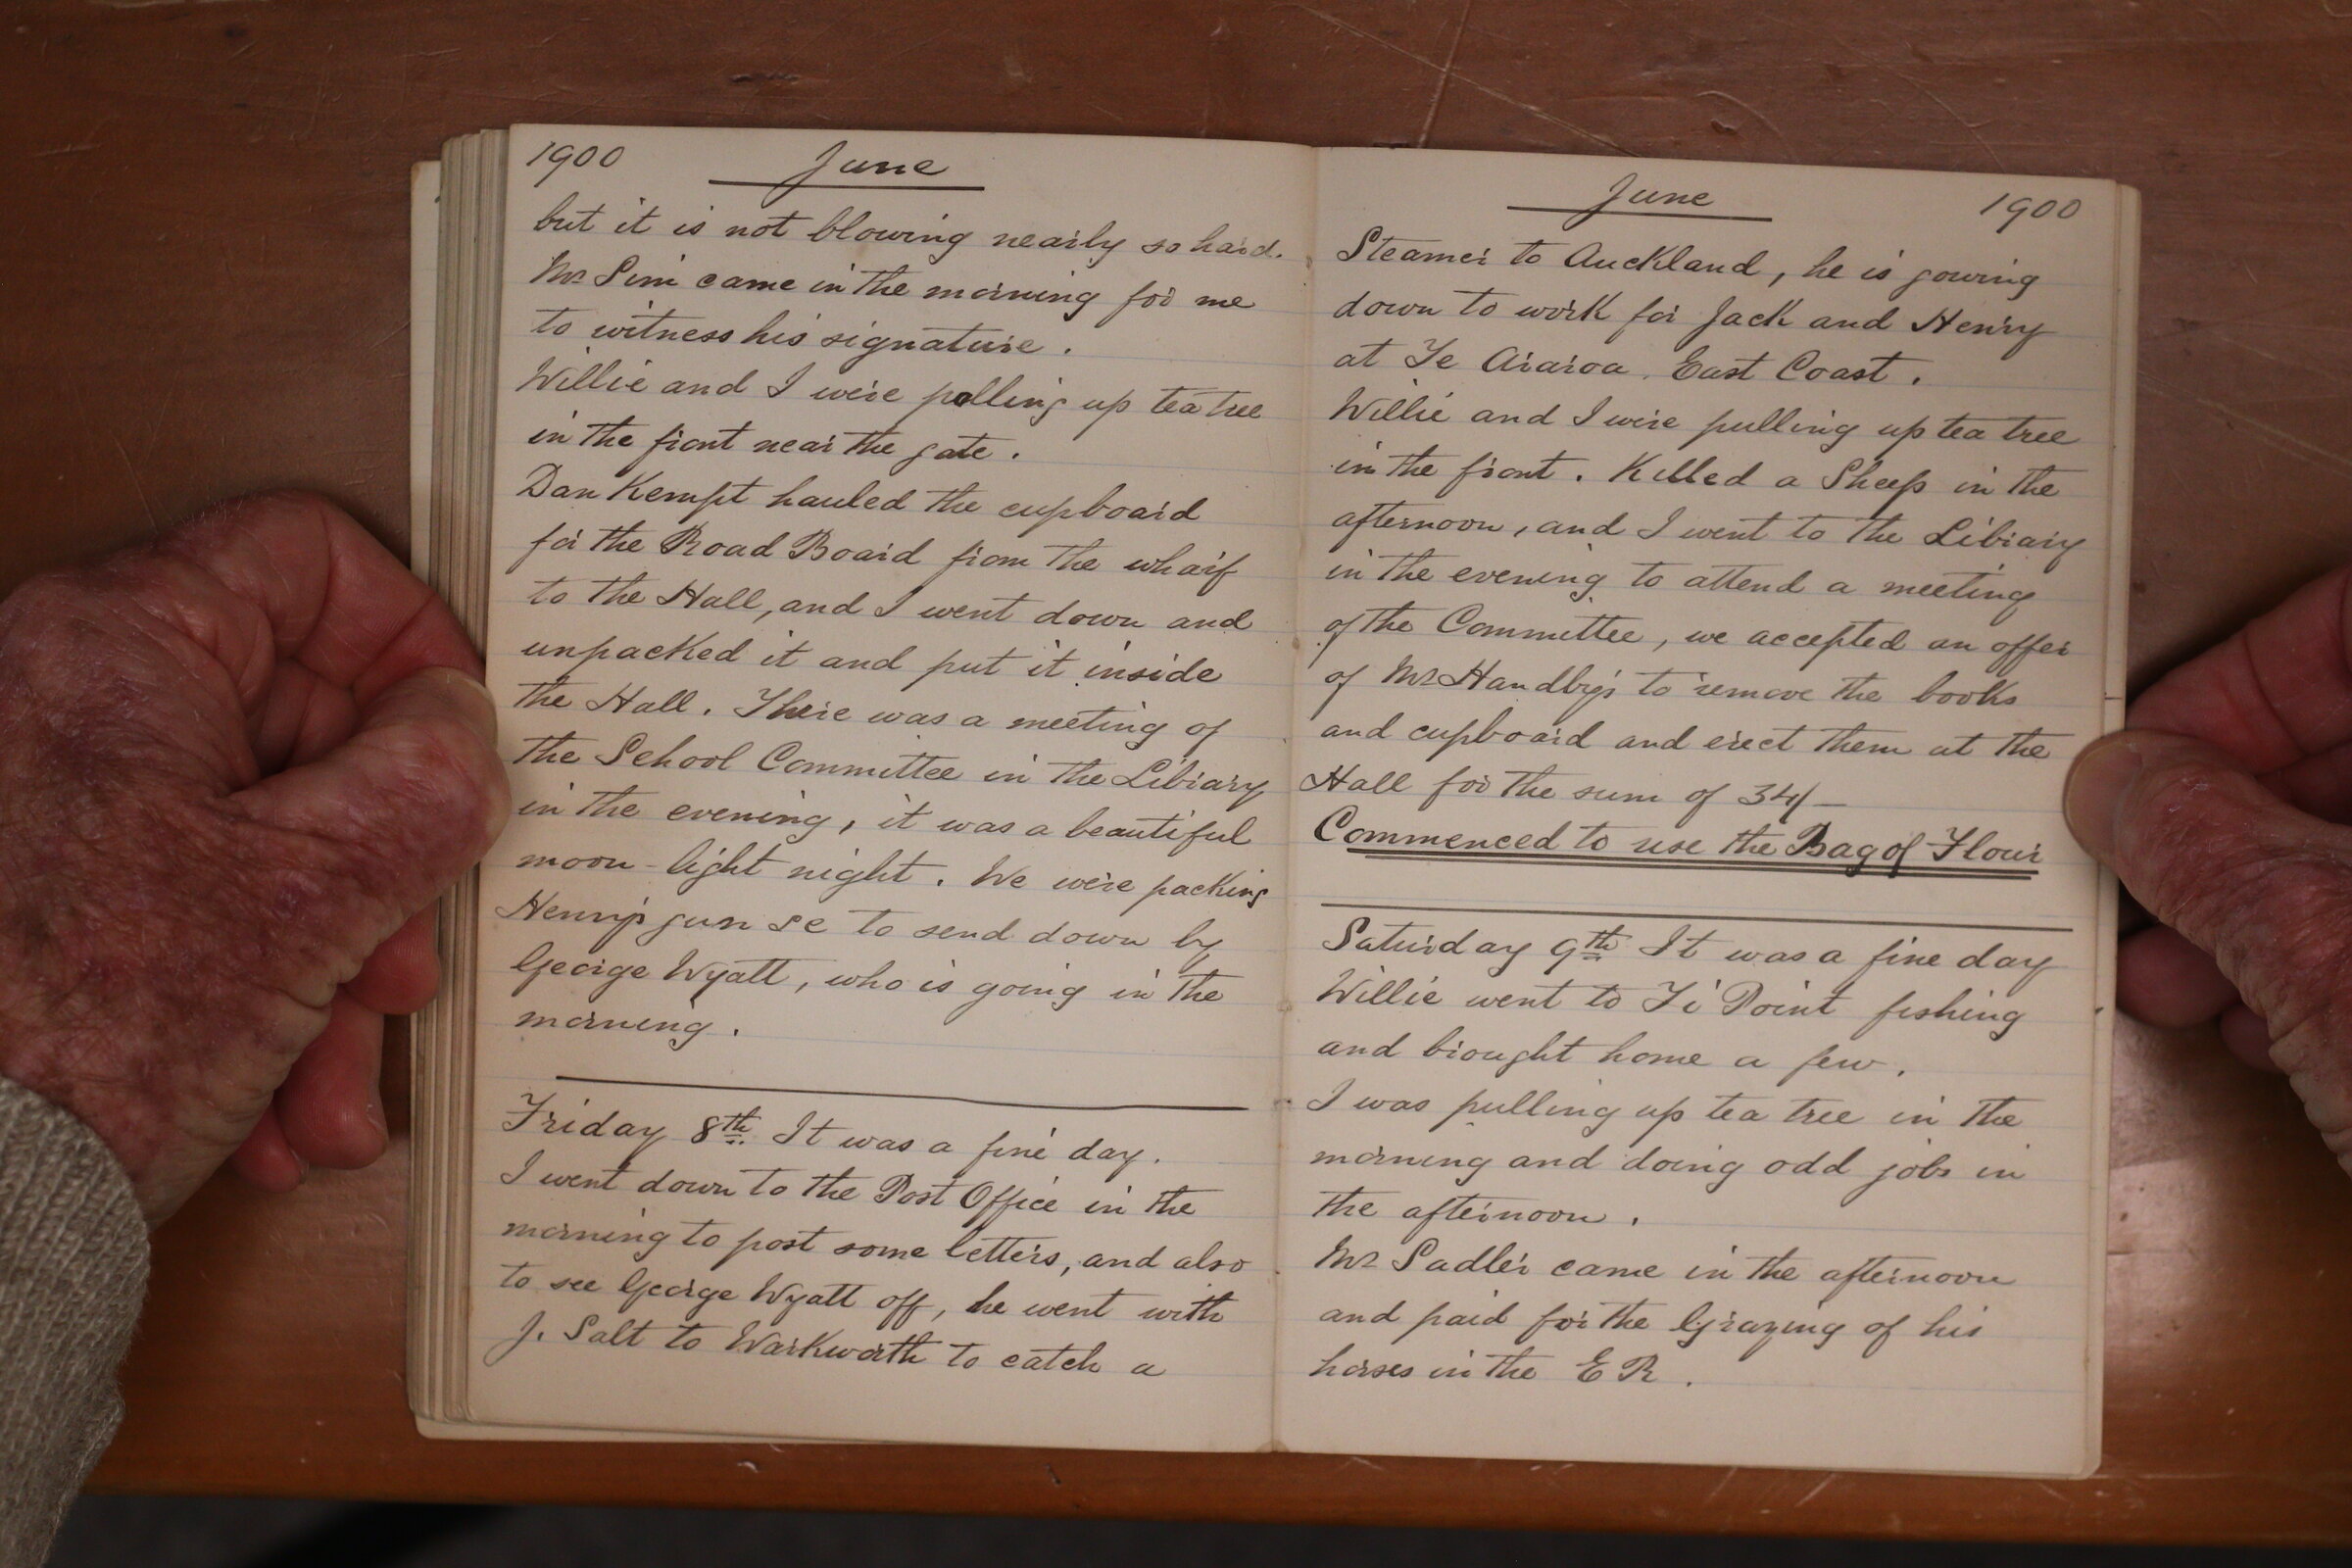 1900 June
but it is not blowing nearly so hard.
Mr Sim came in the morning for me
to witness his signature.
Willie and I were pulling up tea tree
in the front near the gate.
Dan Kempt hauled the cupboard
for the Road Board from the wharf
to the Hall, and I went down and
unpacked it and put it inside
the Hall. There was a meeting of
the School Committee in the Library
in the evening, it was a beautiful
moon-light night. We were packing
Henry's gun &c to send down by
George Wyatt, who is going in the
morning.
Friday 8th It was a fine day.
I went down to the Post Office in the
morning to post some letters, and also
to see George Wyatt off, he went with
J. Salt to Warkworth to catch a
June 1900
Steamer to Auckland, he is gowing
down to work for Jack and Henry
at Te Araroa, East Coast.
Willie and I were pulling up tea tree
in the front. Killed a Sheep in the
afternoon, and I went to the Library
in the evening to attend a meeting
of the Committee, we accepted an offer
of Mr Handby's to remove the books
and cupboard and erect them at the
Hall for the sum of 34/-
Commenced to use the Bag of Flour
Saturday 9th It was a fine day
Willie went to Ti Point fishing
and brought home a few.
I was pulling up tea tree in the
morning and doing odd jobs in
the afternoon.
Mr Sadler came in the afternoon
and paid for the Grazing of his
horses in the E R.